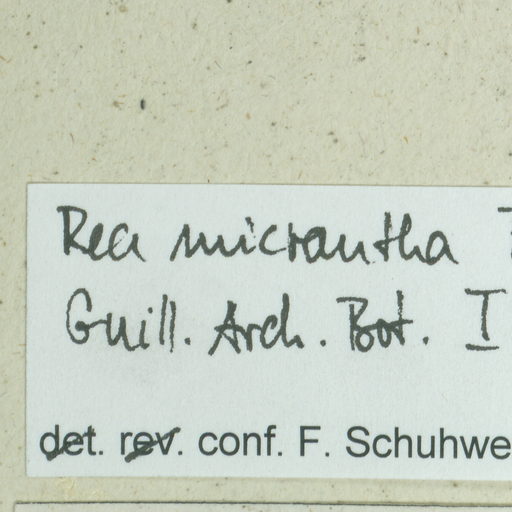 Rea micrantha
Guill. Arch. Bot. I
det. rev. conf. F. Schuhwe